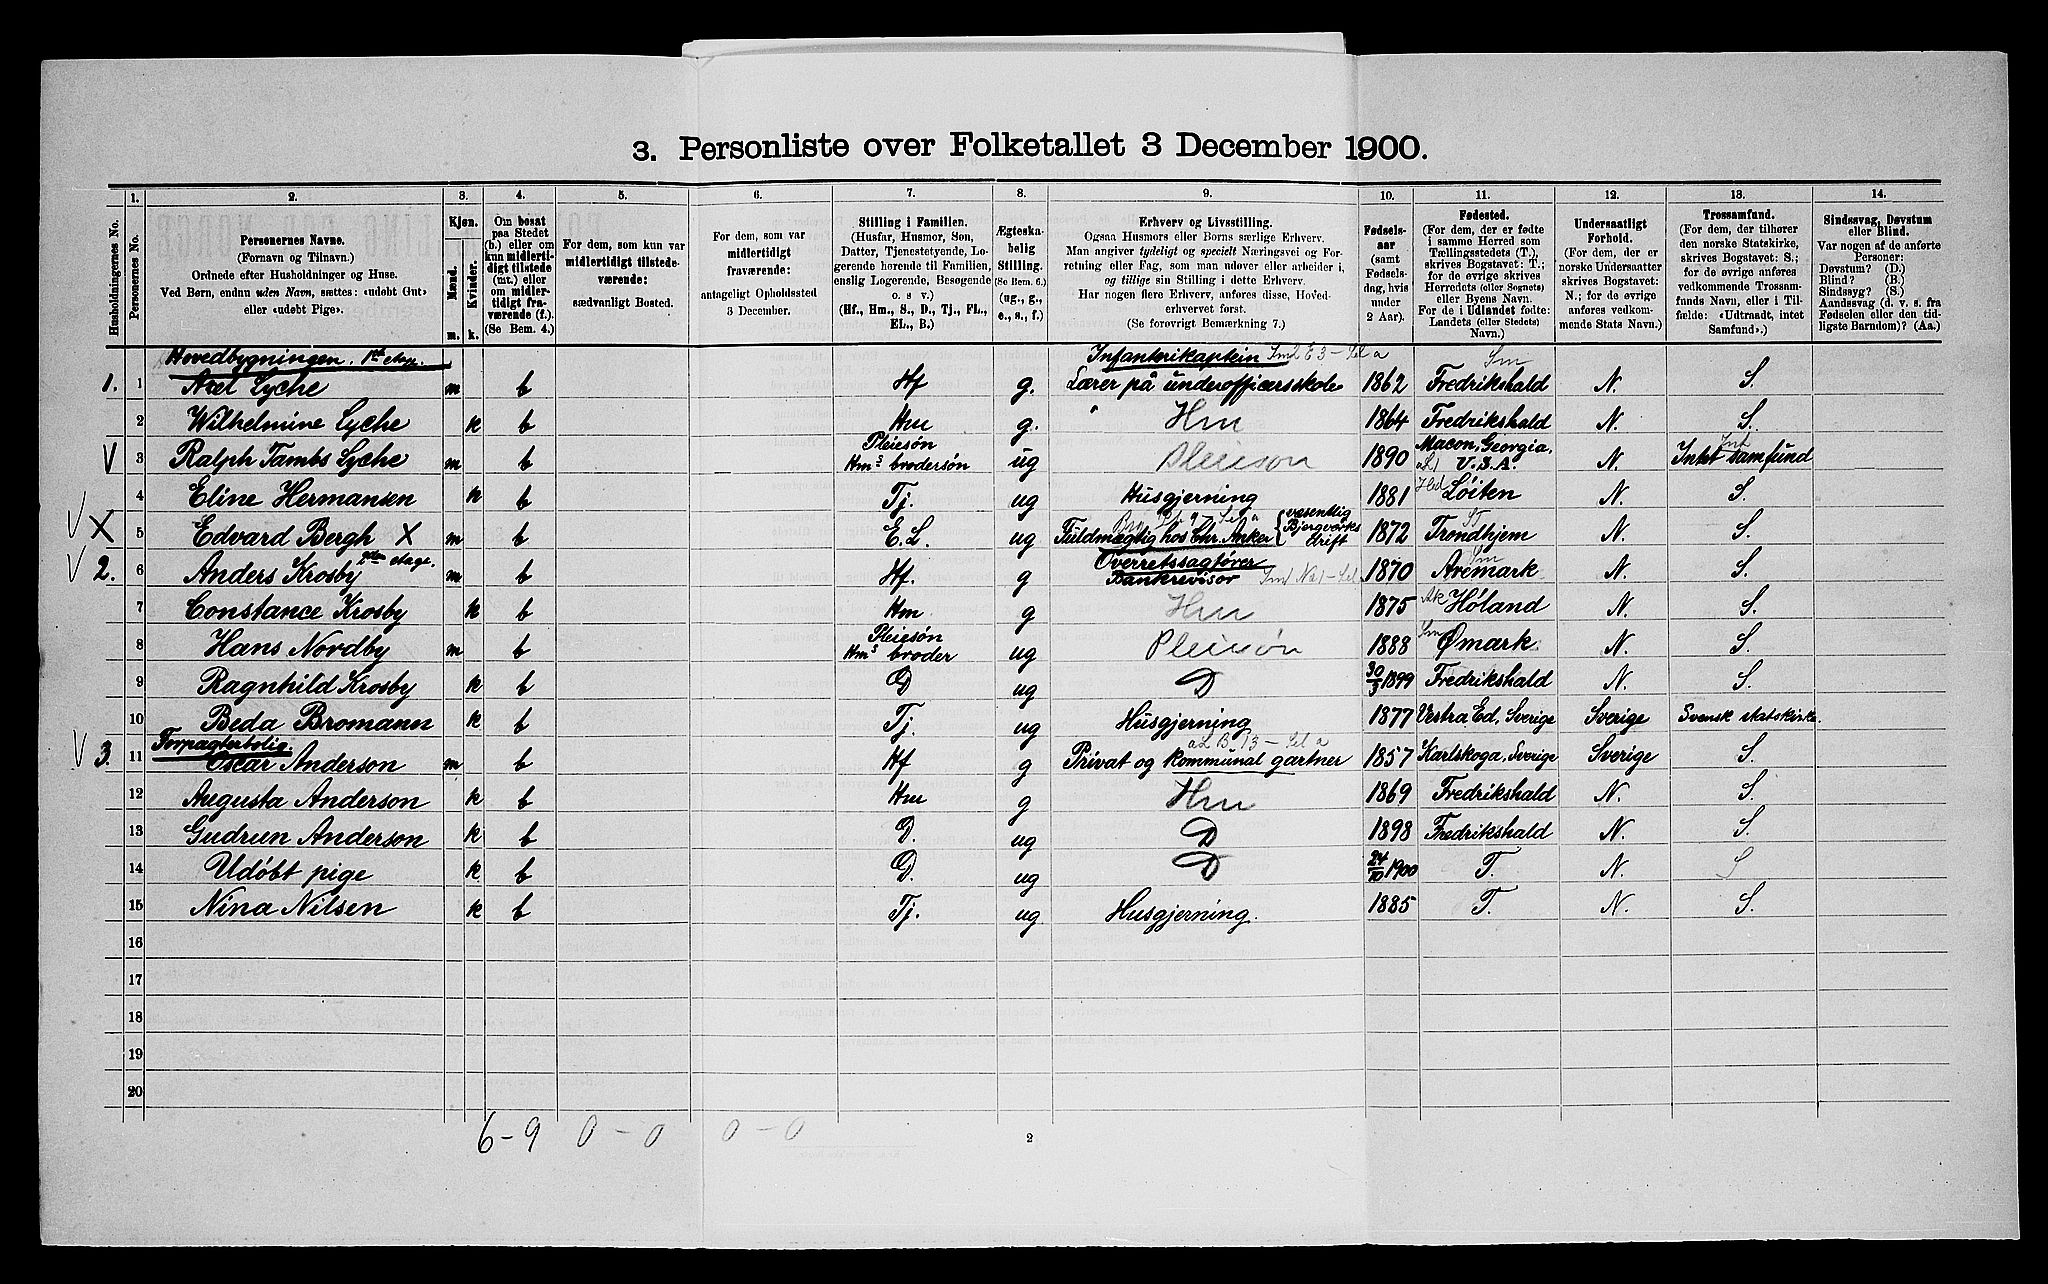 3. Personliste over Folketallet 3 December 1900.
Husholdningernes No.
1.
Personernes No.
2.
Personernes Navne.
(Fornavn og Tilnavn.)
Ordnede efter Husholdninger og Huse.
Ved Børn, endnu uden Navn, sættes: «udøbt Gut»
eller «udøbt Pige».
3.
Kjøn.
Mænd.
Kvinder.
m.
k.
4.
Om bosat
paa Stedet
(b.) eller om
kun midlerti-
digt tilstede
(mt.) eller
om midler-
tidigt fra-
værende (f.).
(Se Bem. 4.)
5.
For dem, som kun var
midlertidigt tilstede-
værende:
sædvanligt Bosted.
6.
For dem, som var
midlertidigt
fraværende:
antageligt Opholdssted
3 December.
7.
Stilling i Familien.
(Husfar, Husmor, Søn,
Datter, Tjenestetyende, Lo-
gerende hørende til Familien,
enslig Logerende, Besøgende
o. s. v.)
(Hf., Hm., S., D., Tj., FL.,
EL., B.)
8.
Ægteska-
belig
Stilling.
(Se Bem. 6.)
(ug., g.,
e., s., f.)
9.
Erhverv og Livsstilling.
Ogsaa Husmors eller Børns særlige Erhverv.
Man angiver tydeligt og specielt Næringsvei og For-
retning eller Fag, som man udøver eller arbeider i,
og tillige sin Stilling i dette Erhverv.
Har nogen flere Erhverv, anføres disse, Hoved-
erhvervet først.
(Se forøvrigt Bemærkning 7.)
10.
Fødsels-
aar
(samt
Fødsels-
dag, hvis
under
2 Aar).
11.
Fødested.
(For dem, der er fødte
i samme Herred som
Tællingsstedets (T.),
skrives Bogstavet: T.;
for de øvrige skrives
Herredets (eller Sognets)
eller Byens Navn.
For de i Udlandet fødte:
Landets (eller Stedets)
Navn.)
12.
Undersaatligt
Forhold.
(For dem, der er
norske Undersaatter
skrives Bogstavet:
N.; for de øvrige
anføres vedkom-
mende Stats Navn.)
13.
Trossamfund.
(For dem, der tilhører
den norske Statskirke,
skrives Bogstavet: S.;
for de øvrige anføres
vedkommende Trossam-
funds Navn, eller i Til-
fælde: «Udtraadt, intet
Samfund».)
14.
Sindssvag, Døvstum
eller Blind.
Var nogen af de anførte
Personer:
Døvstum? (D.)
Blind? (B.)
Sindssyg? (S.)
Aandssvag (d. v. s. fra
Fødselen eller den tid-
ligste Barndom)? (Aa.)
Hovedbygningen. 1ste etage. Infanterikaptein Sm
1. 1 Axel Lyche m b Hf g. Lærer på underofficersskole 1862 Fredrikshald N. S.
2 Wilhelmine Lyche k b Hm g. " Hm 1864 Fredrikshald N. S.
Pleiesøn Macon, Georgia, Int
V 3 Ralph Tambs Lyche m b Hms brodersøn ug Pleiesøn 1890 U.S.A. N. Intet samfund
4 Eline Hermansen k b Tj. ug Husgjerning 1881 Hed Løiten N. S.
væsentlig Bjergværks drift
V X 5 Edvard Bergh X m b E.L. ug Fuldmægtig hos Chr. Anker 1872 Trondhjem N. S.
2den etage. Overretssagfører Sm
V 2. 6 Anders Krosby m b Hf. g Bankrevisor 1870 Aremark N. S.
7 Constance Krosby k b Hm g Hm 1875 Ak Høland N. S.
Pleiesøn
8 Hans Nordby m b Hms broder ug Pleiesøn 1888 Sm Ømark N. S.
9 Ragnhild Krosby k b D ug D 30/3 1899 Fredrikshald N. S.
10 Beda Bromann k b Tj. ug Husgjerning 1877 Vestra Ed, Sverige Sverige Svensk statskirke.
Forpagterbolig.
V 3. 11 Oscar Anderson m b Hf g Privat og kommunal gartner 1857 Karlskoga, Sverige Sverige S.
12 Augusta Anderson k b Hm g Hm 1869 Fredrikshald N. S.
13 Gudrun Anderson k b D. ug D 1898 Fredrikshald N. S.
14 Udøbt pige k b D. ug D 24/10 1900 T. N. S
15 Nina Nilsen k b Tj. ug Husgjerning. 1885 T. N. S.
16
17
18
19
20
6-9 0-0 0-0
2